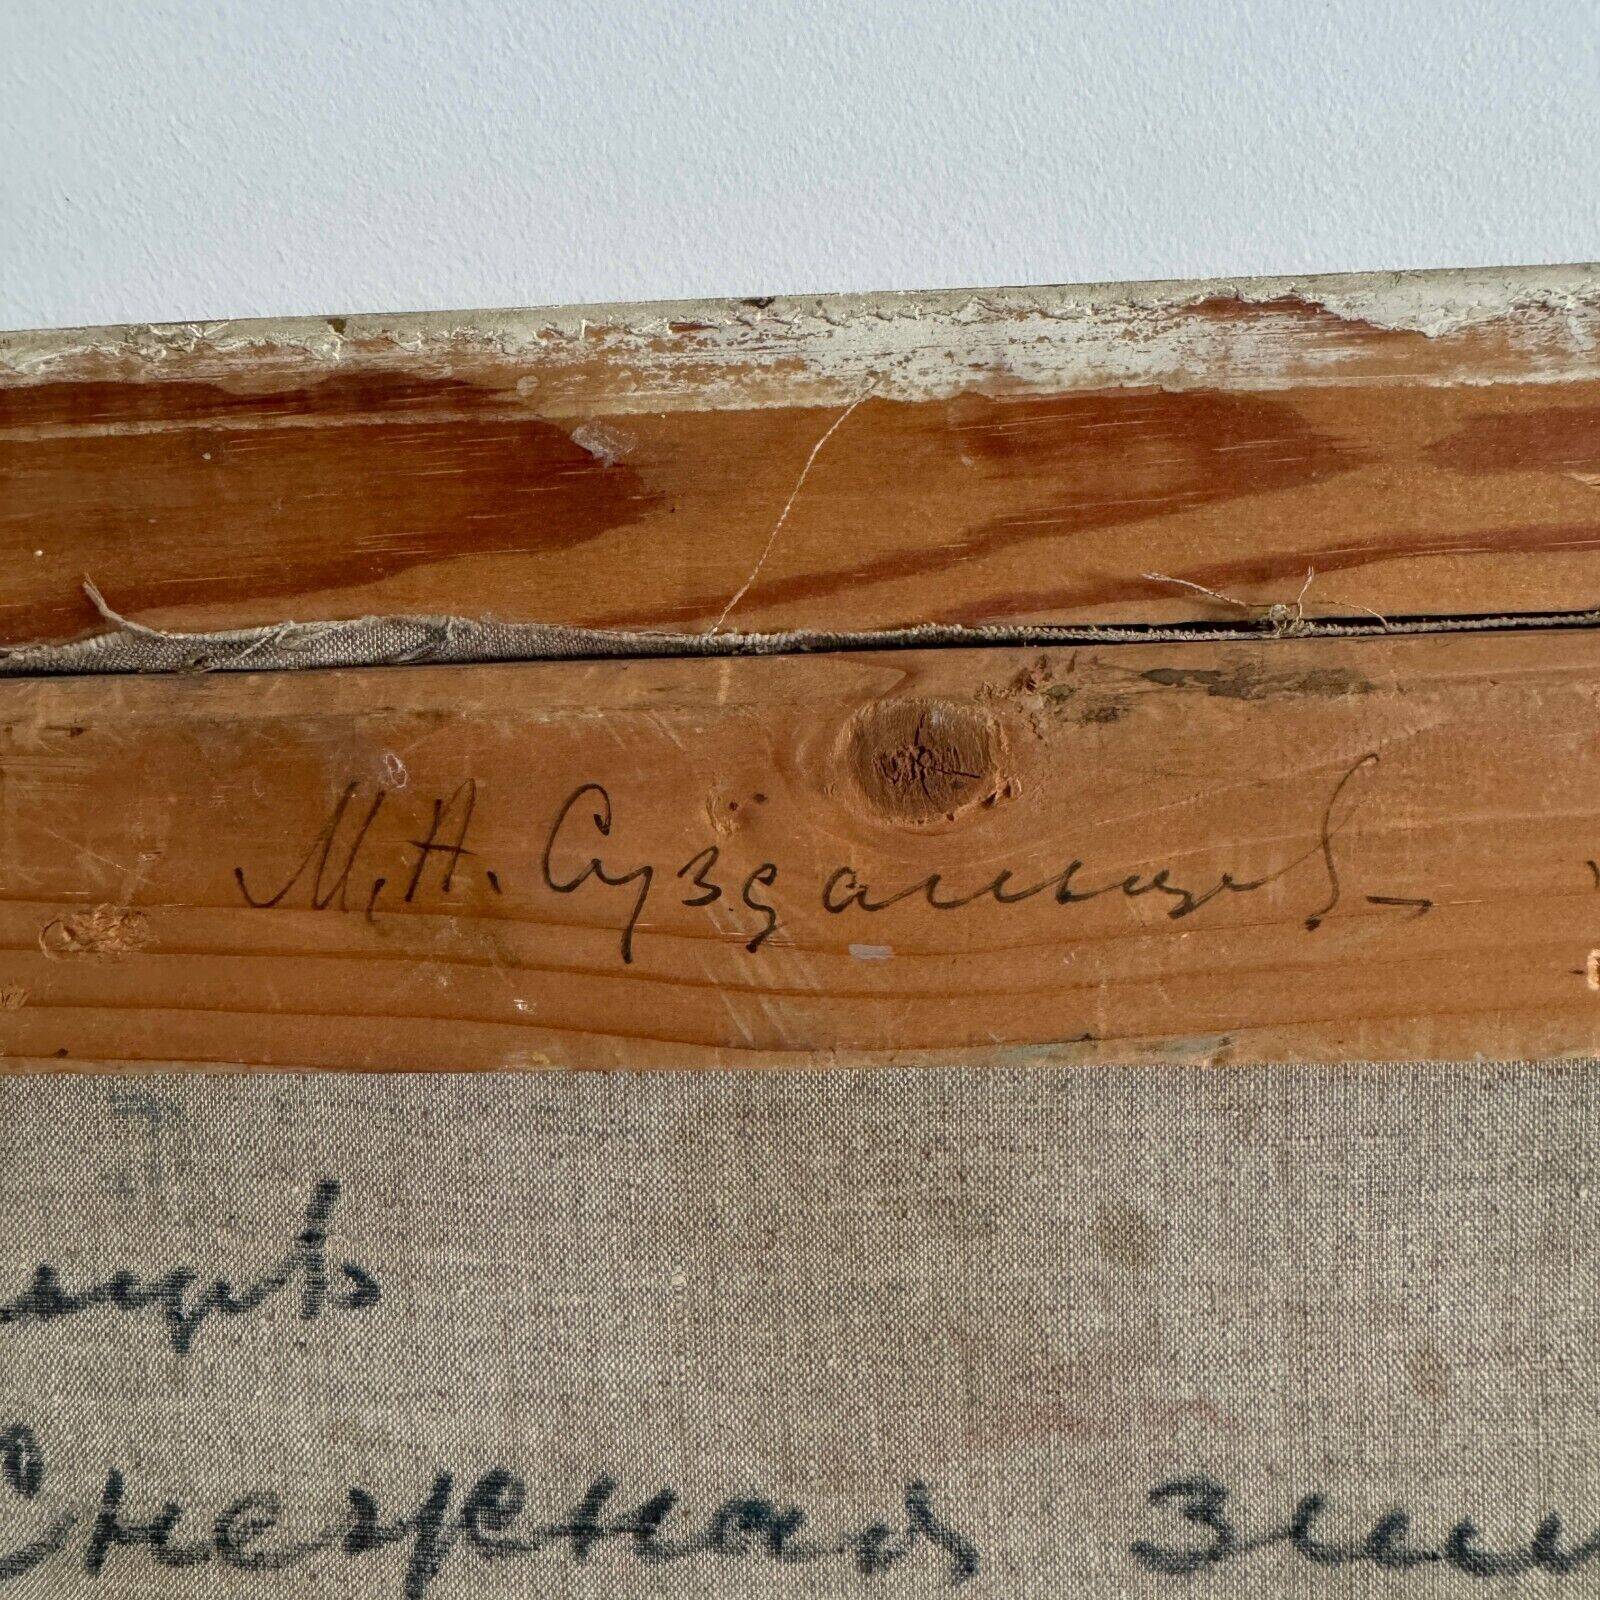 М. А. Суздальцев
льцев
Снежная зим